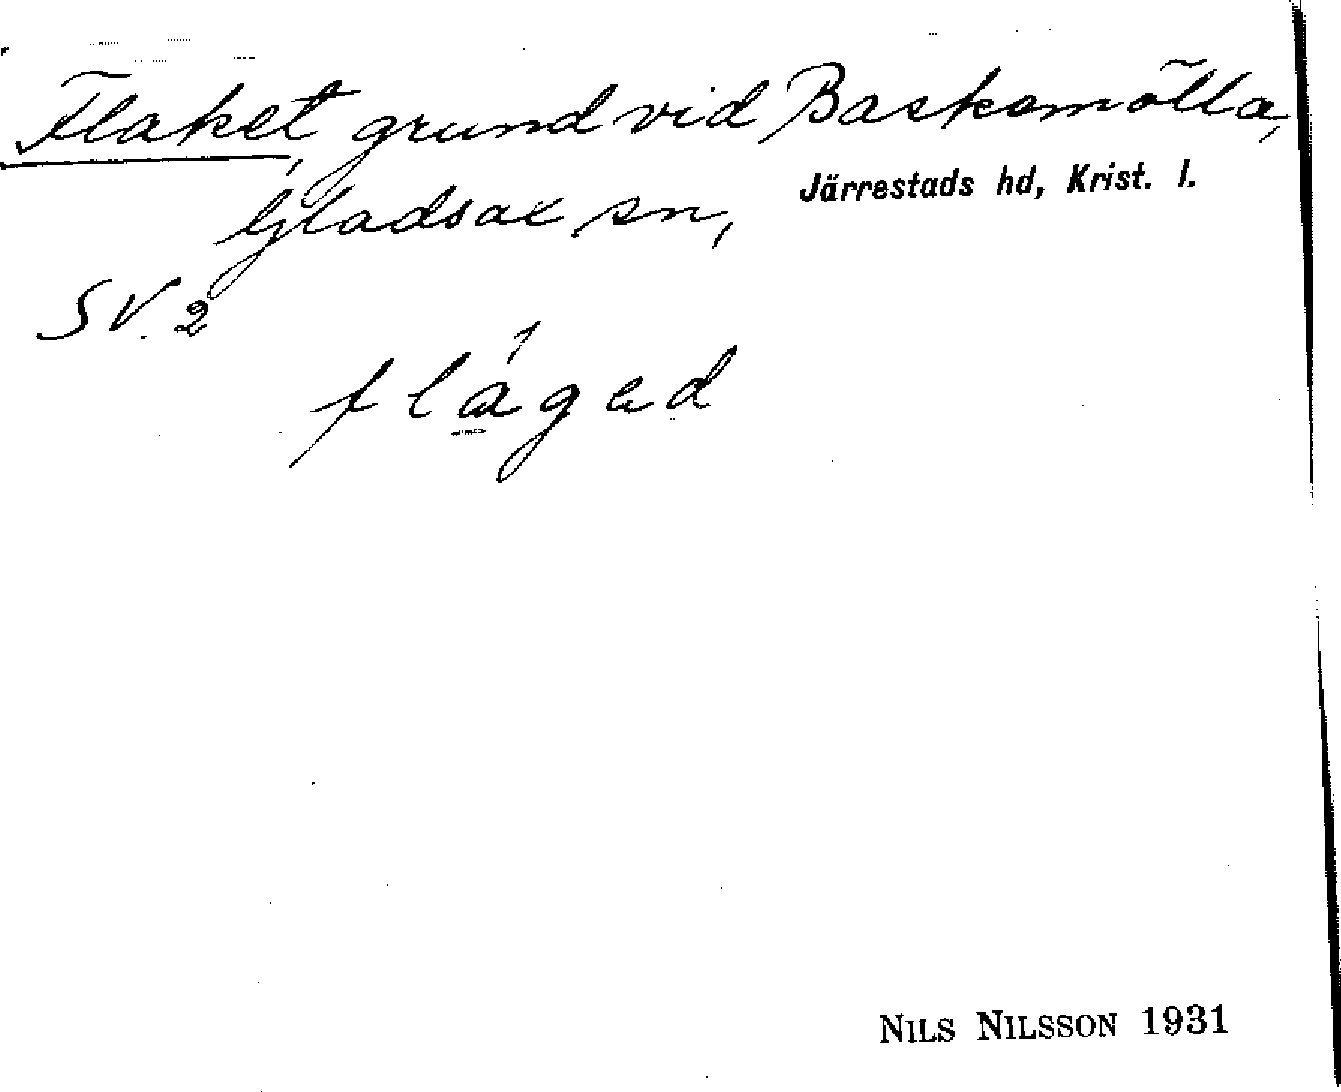 Flaket, grund vid Baskemölla,
Gladsax sn, Järrestads hd, Krist. l.
SV. 2
fláged
NILS NILSSON 1931